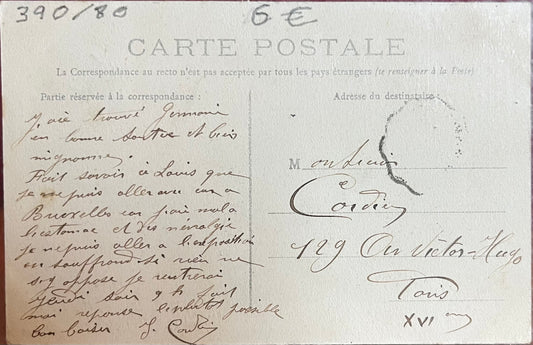 390/80
6 €
CARTE POSTALE
La Correspondance au recto n'est pas acceptée par tous les pays étrangers (se renseigner à la Poste)
Partie réservée à la correspondance :
J'ai trouvé Germaine
en bonne santée et bien
mignonne.
Fait savoir à Louis que
je ne puis aller avec
Bruxelles car j'ai mal a
l'estomac et des nevralgie
je ne puis aller a l'exposition
en souffrand si rien ne
s'y oppose je rentrerai
Jeudi soir 9 h fait
moi reponse le plutot possible
bon baiser J. Cordier
Adresse du destinataire :
Monsieur
Cordier
129 Av Victor-Hugo
Paris
XVI em